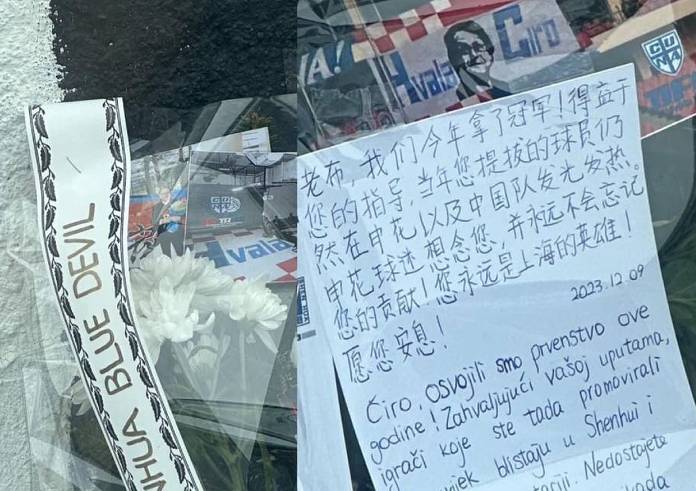 NHUA BLUE DEVIL
Hvala
VA!
Hvala Ćiro
老布，我们今年拿了冠军！得益于
您的指导，当年您提拔的球员仍
然在申花以及中国队发光发热。
申花球迷想念您，并永远不会忘记
您的贡献！您永远是上海的英雄！
愿您安息！
2023.12.09
Ćiro, osvojili smo prvenstvo ove
godine! Zahvaljujući vašoj uputama,
igrači koje ste tada promovirali
ijek blistaju u Shenhui i
Nedostajete